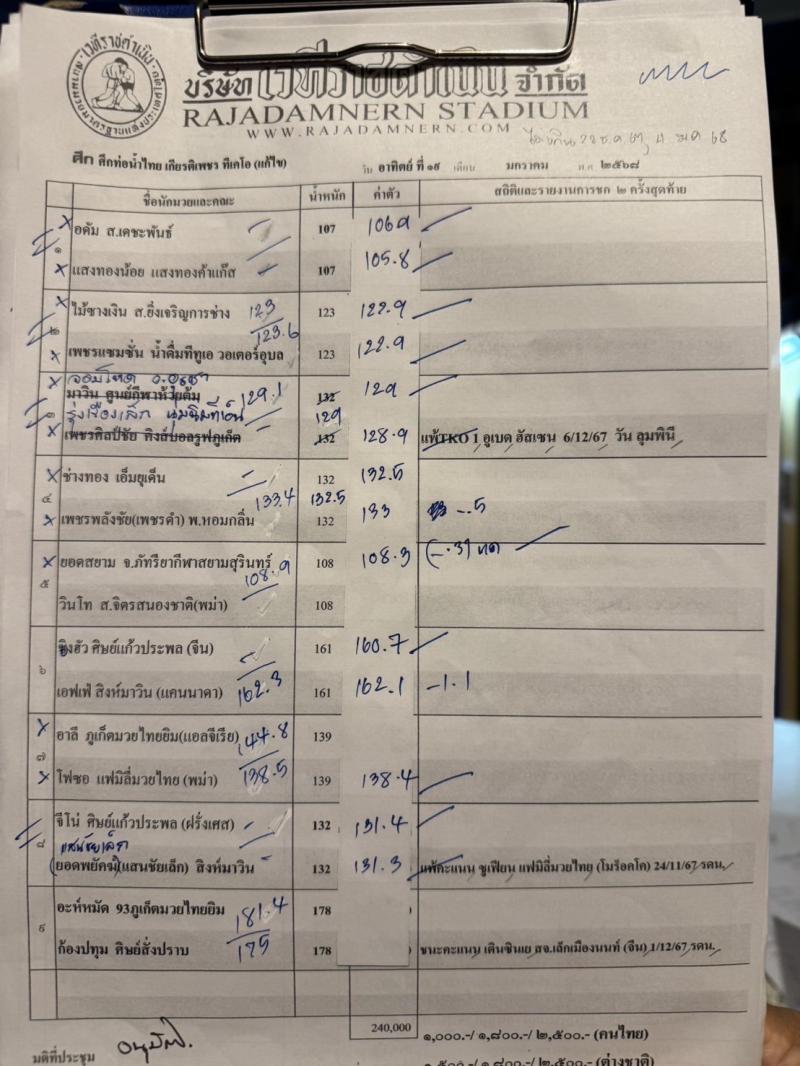 เวทีราชดำเนิน
บริษัท เวทีราชดำเนิน จำกัด
RAJADAMNERN STADIUM
WWW.RAJADAMNERN.COM
ศึก ศึกท่อน้ำไทย เกียรติเพชร ทีเคโอ (แก้ไข) วัน อาทิตย์ ที่ ๑๙ เดือน มกราคม พ.ศ. ๒๕๖๘
ชื่อนักมวยและคณะ น้ำหนัก ค่าตัว สถิติและรายงานการชก ๒ ครั้งสุดท้าย
๑
อคัม ส.เดชะพันธ์ 107 106.9
แสงทองน้อย แสงทองค้าแก๊ส 107 105.8
๒
ไม้ซางเงิน ส.ยิ่งเจริญการช่าง 123 123 122.9
123.6
เพชรแซมซั่น น้ำดื่มทีทูเอ วอเตอร์อุบล 123 122.9
๓
มาวิน ศูนย์กีฬาห้วยต้ม 129.1 132 129
รุ่งเรืองเล็ก 129
เพชรศิลป์ชัย คิงส์บอลรูฟภูเก็ต 132 128.9 แพ้TKO 1 อูเบด ฮัสเซน 6/12/67 วัน ลุมพินี
๔
ช่างทอง เอ็มยูเด็น 132 132.5
133.4 132.5
เพชรพลังชัย(เพชรดำ) พ.หอมกลิ่น 132 133 -.5
๕
ยอดสยาม จ.ภัทรียากีฬาสยามสุรินทร์ 108 108.3
108.9
วินโท ส.จิตรสนองชาติ(พม่า) 108
๖
ชิงฮัว ศิษย์แก้วประพล (จีน) 161 160.7
เอฟเฟ่ สิงห์มาวิน (แคนนาดา) 162.3 161 162.1 -1.1
๗
อาลี ภูเก็ตมวยไทยยิม(แอลจีเรีย) 144.8 139
โฟซอ แฟมิลี่มวยไทย (พม่า) 138.5 139 138.4
๘
จีโน่ ศิษย์แก้วประพล (ฝรั่งเศส) 132 131.4
แสนชัยเล็ก
(ยอดพยัคฆ์)(แสนชัยเล็ก) สิงห์มาวิน 132 131.3 แพ้คะแนน ซูเฟียน แฟมิลี่มวยไทย (โมร็อคโค) 24/11/67 รดน.
๙
อะห์หมัด 93ภูเก็ตมวยไทยยิม 181.4 178
ก้องปทุม ศิษย์สั่งปราบ 175 178 ชนะคะแนน เดินซินเย สจ.เล็กเมืองนนท์ (จีน) 1/12/67 รดน.
240,000 ๑,๐๐๐.-/ ๑,๘๐๐.-/ ๒,๕๐๐.- (คนไทย)
มติที่ประชุม อนุมัติ. ๑,๕๐๐.-/ ๑,๘๐๐.-/ ๒,๕๐๐.- (ต่างชาติ)